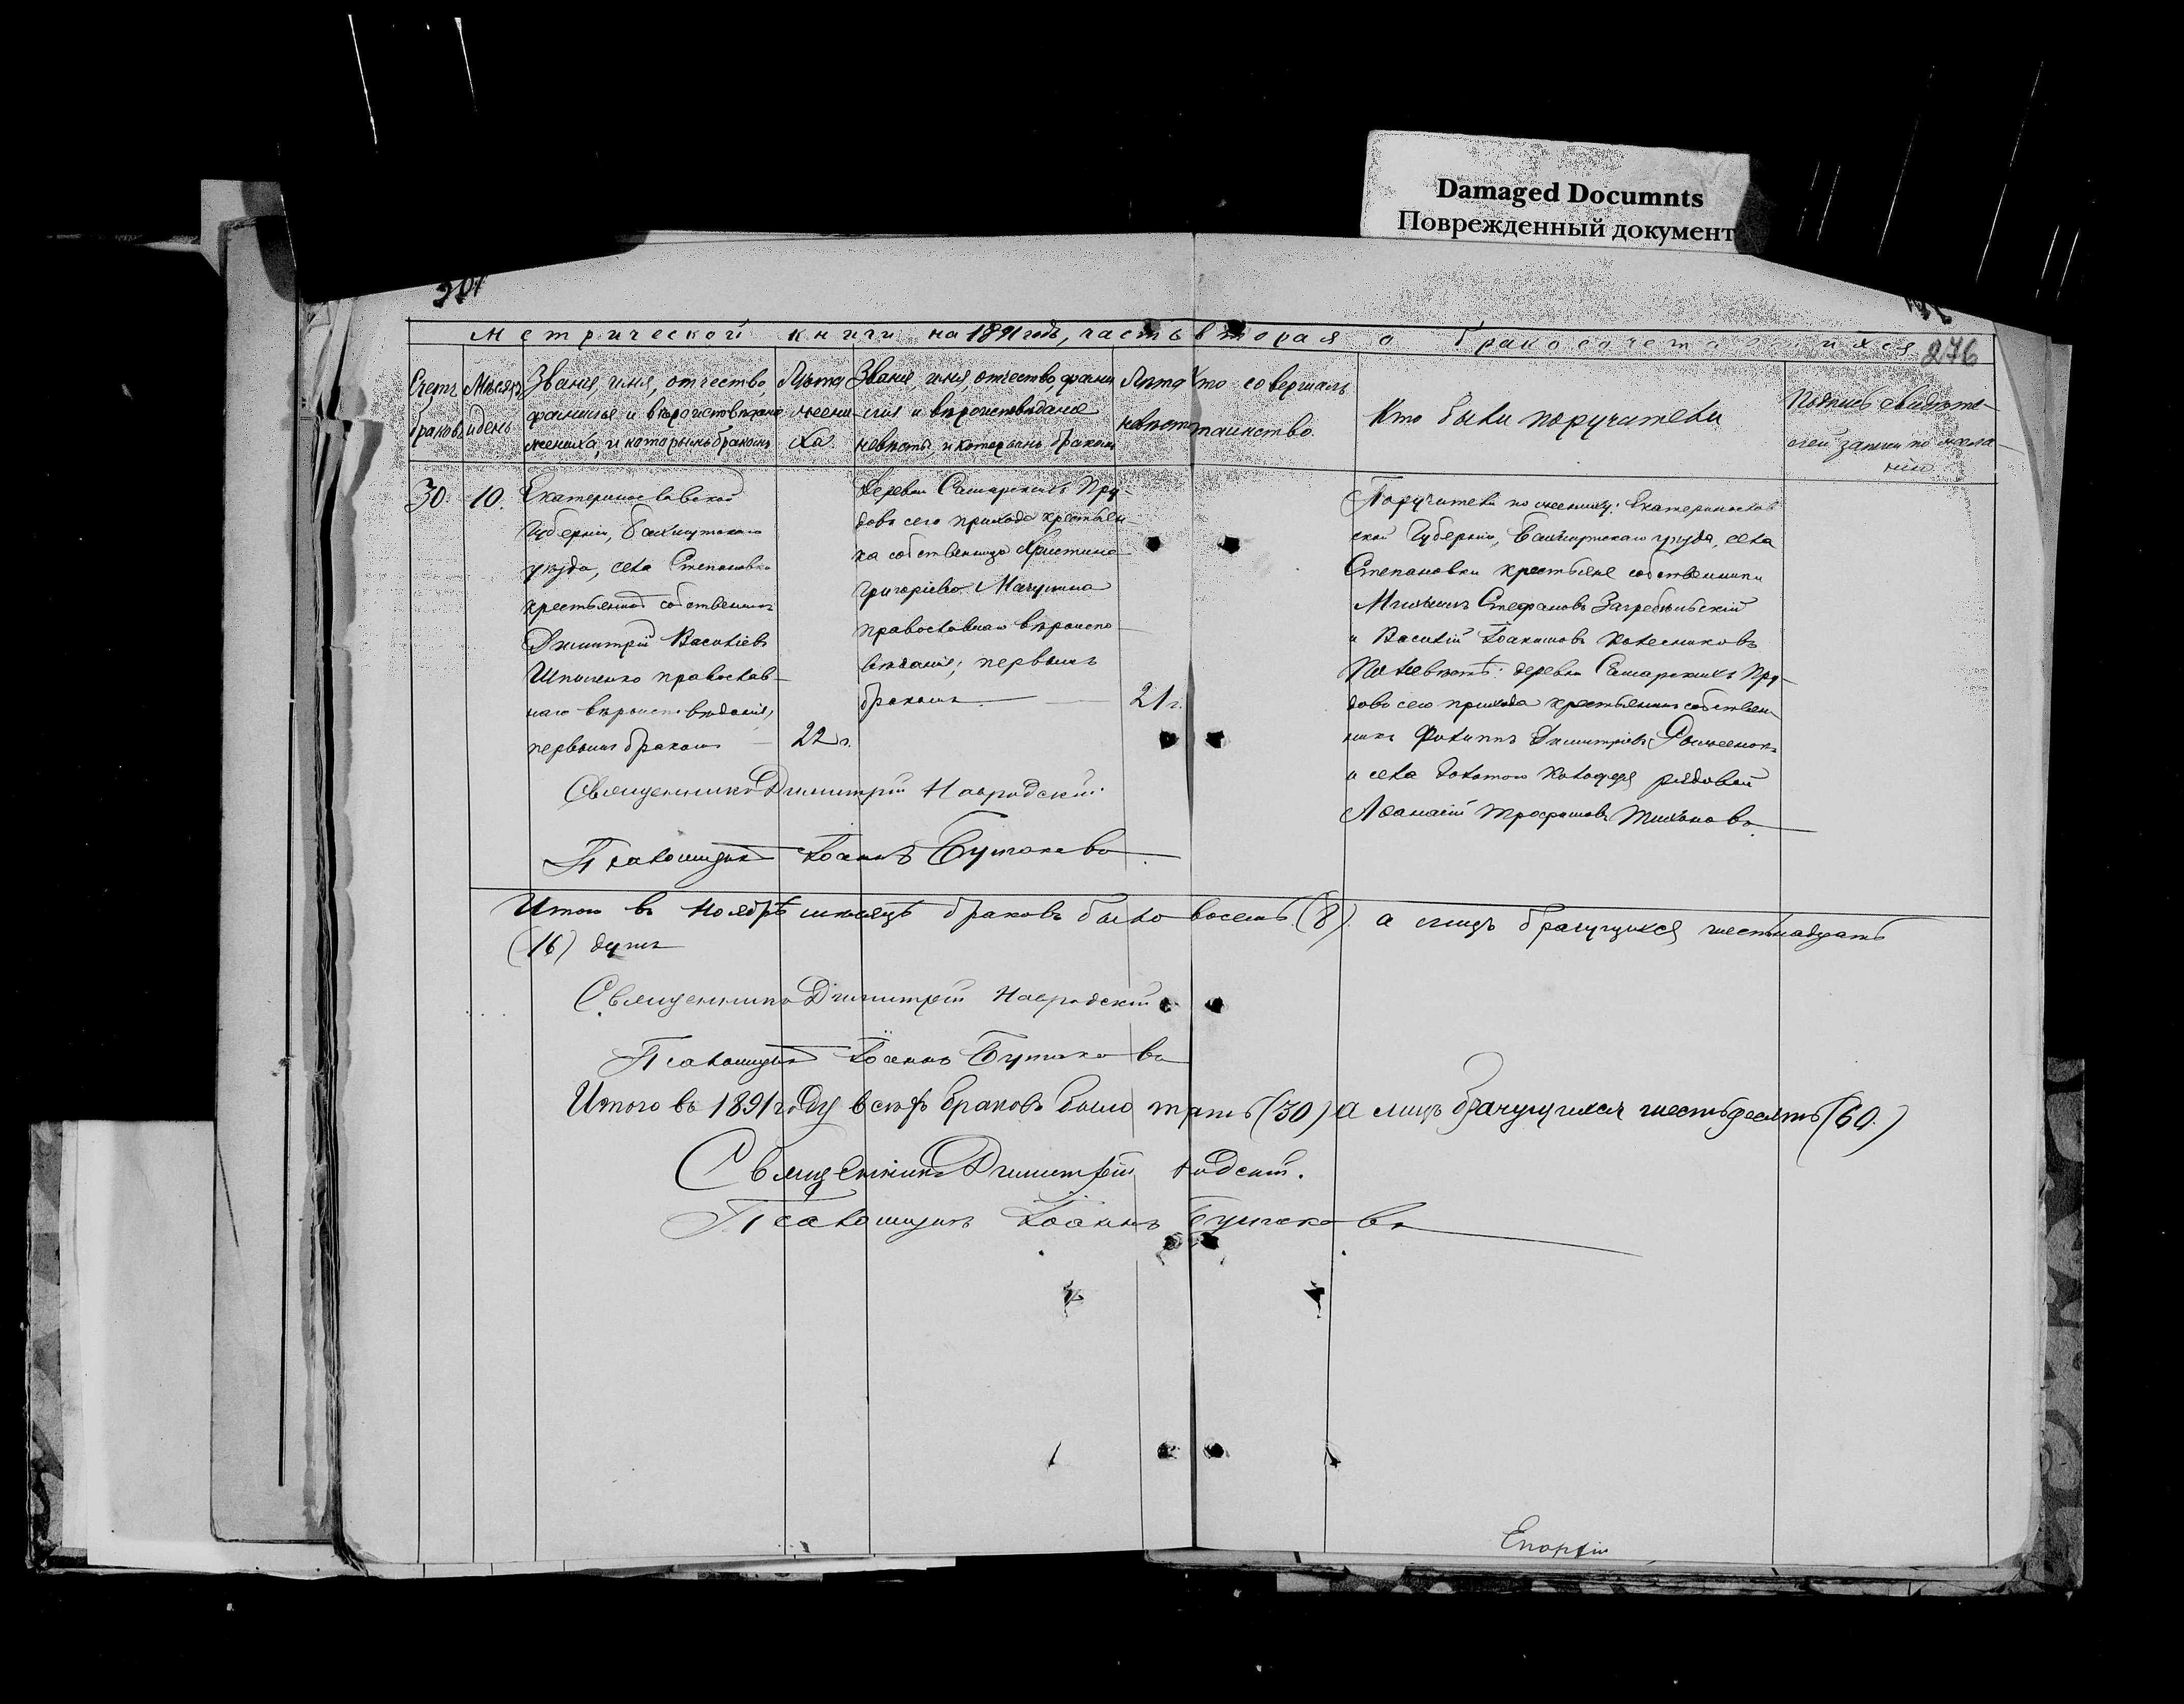 Damaged Documnts
Поврежденный документ
Метрической книги на 1891 годъ, часть вторая о бракосочетавшихся
276
Счетъ браковъ
Мѣсяцъ и день
Званіе, имя, отчество, фамилія и вѣроисповѣданіе жениха, и которымъ бракомъ
Лѣта жениха
Званіе, имя, отчество, фамилія и вѣроисповѣданіе невѣсты, и которымъ бракомъ
Лѣта невѣсты
Кто совершалъ таинство.
Кто были поручители
Подпись свидѣтелей записи по желанію
30.
10.
Екатеринославской
Губерніи, Бахмутскаго
уѣзда, села Степановки
крестьянинъ собственникъ
Димитрій Васильевъ
Шпиченко православ-
наго вѣроисповѣданія,
первымъ бракомъ
22 г.
Деревни Самарскихъ Пру-
довъ сего прихода крестьян-
ка собственница Христина
Григорьева Мачулина
православнаго вѣроиспо-
вѣданія; первымъ
бракомъ
21 г.
Поручители по жениху: Екатеринослав
ской Губерніи, Бахмутскаго уѣзда, села
Степановки крестьяне собственники
Михаилъ Стефановъ Загребельскій
и Василій Іоакимовъ Колесниковъ
По невѣстѣ: деревни Самарскихъ Пру-
довъ сего прихода крестьянинъ собствен-
никъ Филиппъ Димитріевъ
и села рядовой
Аѳанасій Трофимовъ Тихоновъ.
Священникъ Димитрій Навродскій
Псаломщикъ Іоаннъ Бутаковъ.
Итого въ Ноябрѣ мѣсяцѣ браковъ было восемь (8) а лицъ брачущихся шестнадцать
(16) душъ
Священникъ Димитрій Навродскій
Псаломщикъ Іоаннъ Бутаковъ
Итого въ 1891 году всѣхъ браковъ было тритць (30) а лицъ брачущихся шестьдесятъ (60.)
Священникъ Димитрій родскій.
Псаломщикъ Іоаннъ Бутаковъ